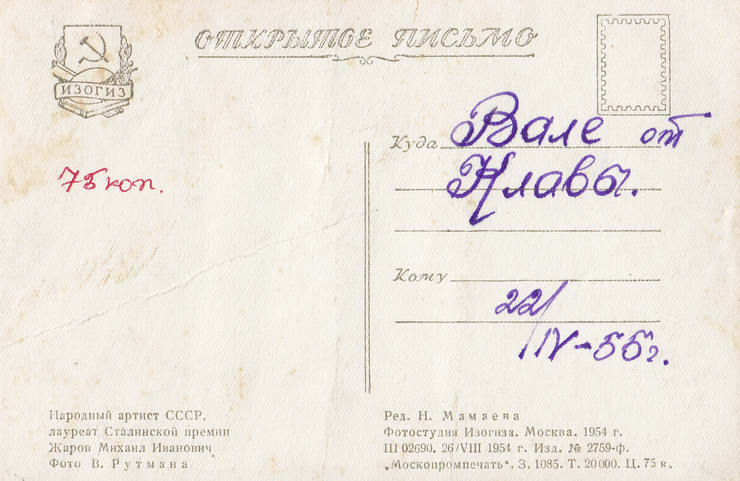 ИЗОГИЗ
ОТКРЫТОЕ ПИСЬМО
75 коп.
Куда
Вале от
Клавы.
Кому
22/
IV-55г.
Народный артист СССР,
лауреат Сталинской премии
Жаров Михаил Иванович
Фото В. Рутмана
Ред. Н. Мамаева
Фотостудия Изогиза. Москва. 1954 г.
Ш 02690. 26/VIII 1954 г. Изд. № 2759-ф.
„Москопромпечать". З. 1085. Т. 20000. Ц. 75 к.